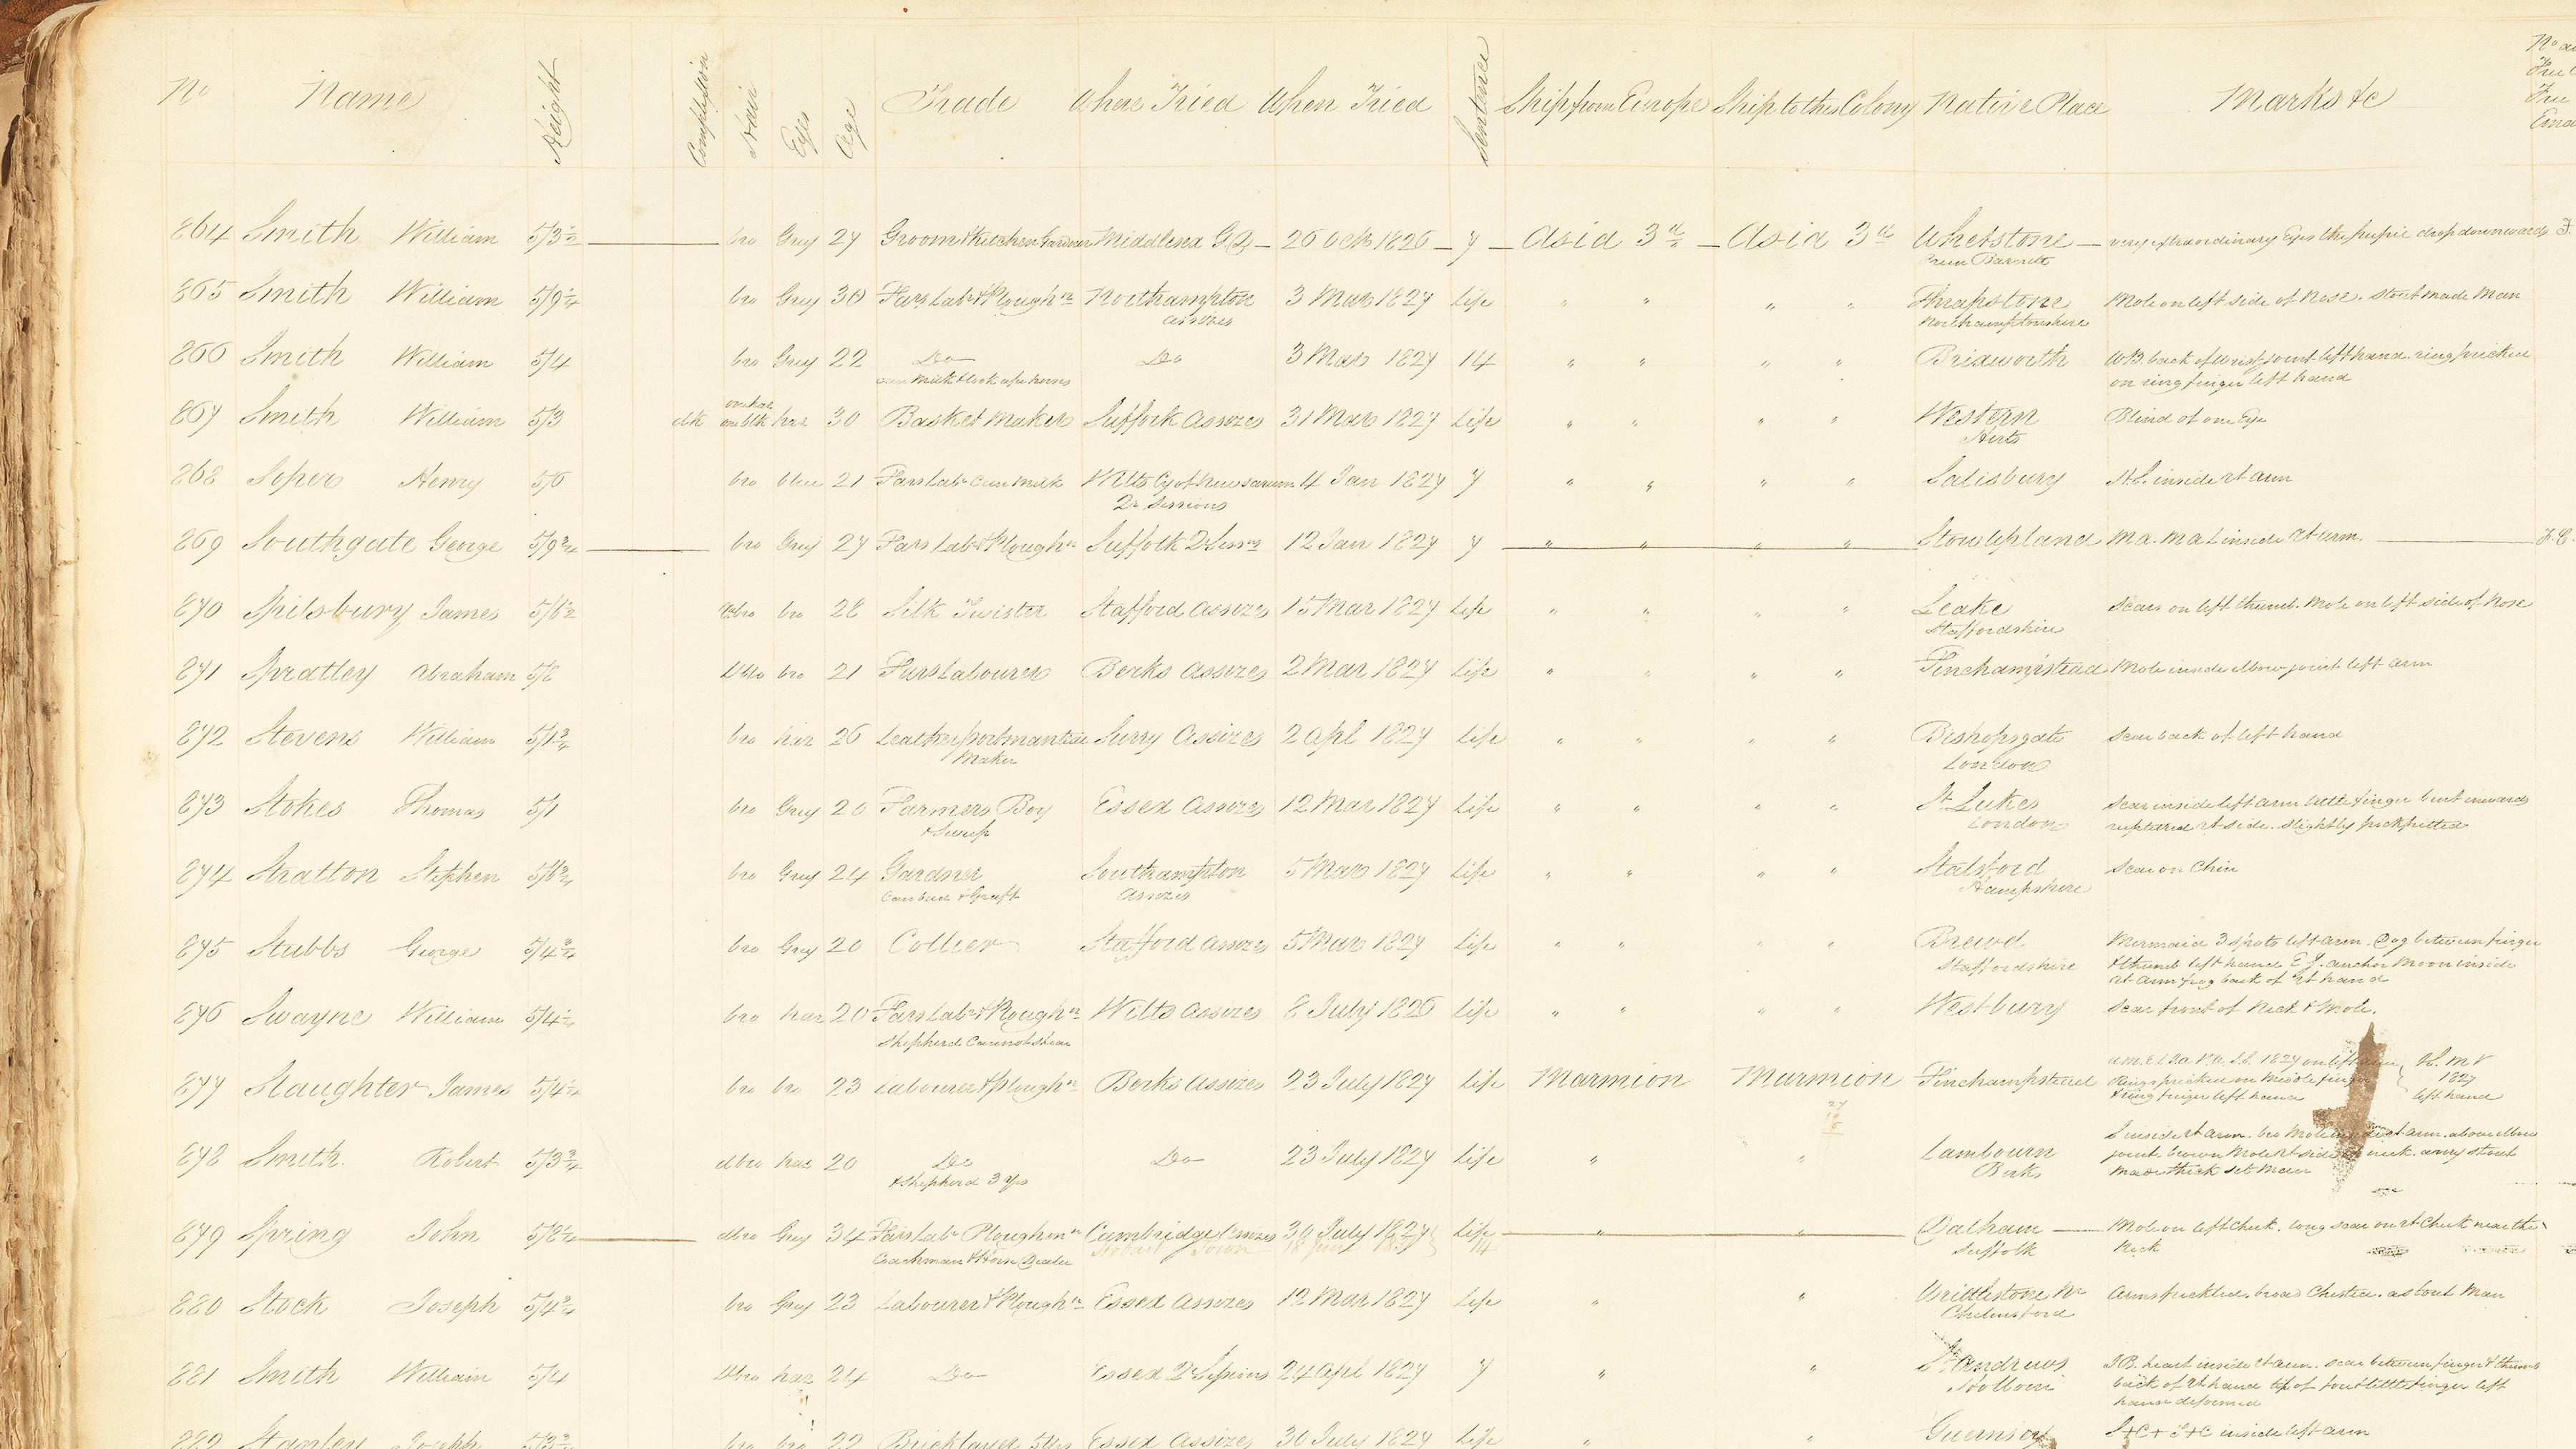 No Name Height Complexion Hair Eyes Age Trade Where Tried When Tried Sentence Ship from Europe Ship to this Colony Native Place Marks &c
864 Smith William 5/3½ bro Grey 27 Groom & Kitchen Gardener Middlesex G.D. 26 Oct 1826 7 Asia 3d Asia 3d Whetstone very extraordinary Eyes the pupil drop downwards
Barnett
865 Smith William 5/9¼ bro Grey 30 Fars Labr & Ploughn Northampton 3 Mar 1827 Life " " " " Thrapstone Mole on left side of Nose. stout made Man
assizes Northamptonshire
866 Smith William 5/4 bro Grey 22 Do Do 3 Mar 1827 14 " " " " Brixworth W.B. back of wrist joint left hand. ring pricked
can Milk & look after horses on ring finger left hand
867 Smith William 5/3 dk one blk haz 30 Basket Maker Suffolk Assizes 31 Mar 1827 Life " " " " Western Blind of one Eye
Herts
868 Soper Henry 5/6 bro blue 21 Fars Labr Can Milk Wilts Cy of New Sarum 4 Jan 1827 7 " " " " Salisbury H.S. inside rt arm
Qr Sessions
869 Southgate George 5/9¾ bro Grey 27 Fars Labr & Ploughn Suffolk Q Sessns 12 Jan 1827 7 " " " " Stowupland Ma. Ma L inside rt arm.
870 Spilsbury James 5/6½ bro 28 Silk Twister Stafford Assizes 15 Mar 1827 Life " " " " Leake Scar on left thumb. Mole on left side of Nose
Staffordshire
871 Spratley Abraham 5/8 Dbro bro 21 Fars Labourer Berks Assizes 2 Mar 1827 Life " " " " Finchampstead Mole inside elbow joint left arm
872 Stevens William 5/1¾ bro haz 26 Leather portmanteau Surry Assizes 2 Apl 1827 Life " " " " Bishopsgate Scar back of left hand
Maker London
873 Stokes Thomas 5/1 bro Grey 20 Farmers Boy Essex Assizes 12 Mar 1827 Life " " " " St Lukes Scar inside left arm little finger bent inwards
& Sweep London ruptured rt side. slightly pockpitted
874 Stratton Stephen 5/6¾ bro Grey 24 Gardner Southampton 5 Mar 1827 Life " " " " Stalsford Scar on Chin
Can bud & Graft Assizes Hampshire
875 Stubbs George 5/4¾ bro Grey 20 Collier Stafford Assizes 5 Mar 1827 Life " " " " Brewd Mermaid 3 spots left arm. Dog between finger
Staffordshire & thumb left hand E J. anchor Moon inside
rt arm frog back of rt hand
876 Swayne William 5/4¼ bro haz 20 Fars Labr & Ploughn Wilts Assizes 8 July 1826 Life " " " " Westbury Scar front of Neck & Mole.
Shepherd Cannot Shear
877 Slaughter James 5/4½ bro bro 23 Labourer & Ploughn Berks Assizes 23 July 1827 Life Marmion Marmion Finchampstead 1827 on left arm
Rings pricked on Middle finger 1827
& ring finger left hand left hand
878 Smith Robert 5/3¾ dbro haz 20 Do Do 23 July 1827 Life " " Lambourn inside rt arm. bro Mole rt arm. above elbow
& Shepherd 3 Yrs Berks joint. brown Mole rt side neck. very stout
made thick set Man
879 Spring John 5/8¼ dbro Grey 34 Fars Labr Ploughmn Cambridge Assizes 30 July 1827 Life " " Dalham Mole on left Cheek. long scar on rt Cheek near the
Coachman & Horse Dealer Hobart Town 14 Suffolk Neck
880 Stock Joseph 5/4¾ bro Grey 23 Labourer & Ploughn Essex Assizes 12 Mar 1827 Life " " Writtlestone Nr Arms freckled. broad Chested. a stout Man
Chelmsford
881 Smith William 5/4 Dbro haz 24 Do Essex Qr Sessions 24 Apl 1827 7 " " St Andrews J B. heart inside rt arm. scar between finger & thumb
Holborn back of rt hand top of fore & little finger left
hand deformed
882 Stanley Joseph 5/3¾ bro bro 22 Bricklayer 5 Yrs Essex Assizes 30 July 1827 Life " " Guernsey inside left arm